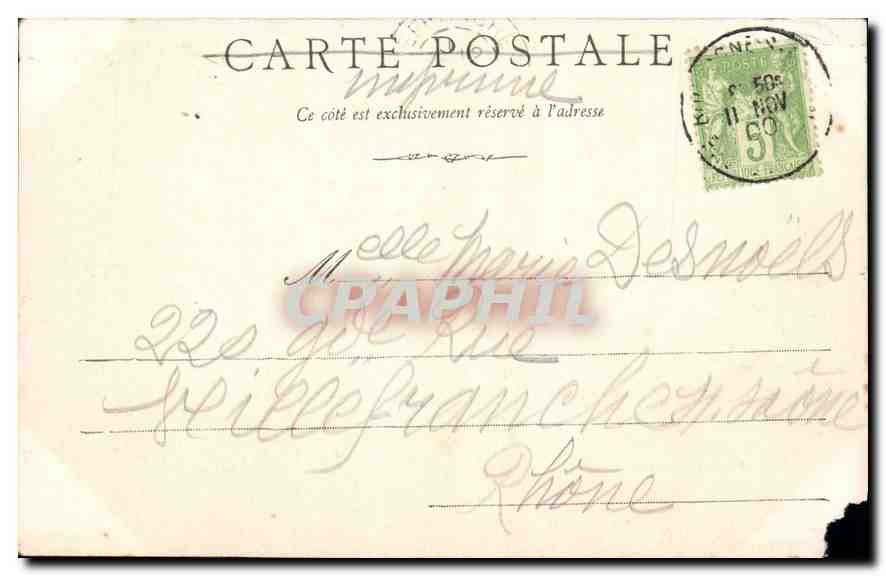 CARTE POSTALE
imprimé
Ce côté est exclusivement réservé à l'adresse
POSTE
50
11 NOV
00
5
Melle Marie Desnoëls
220 gde Rue
CPAPHIL
Villefranche s/ saône
Rhône